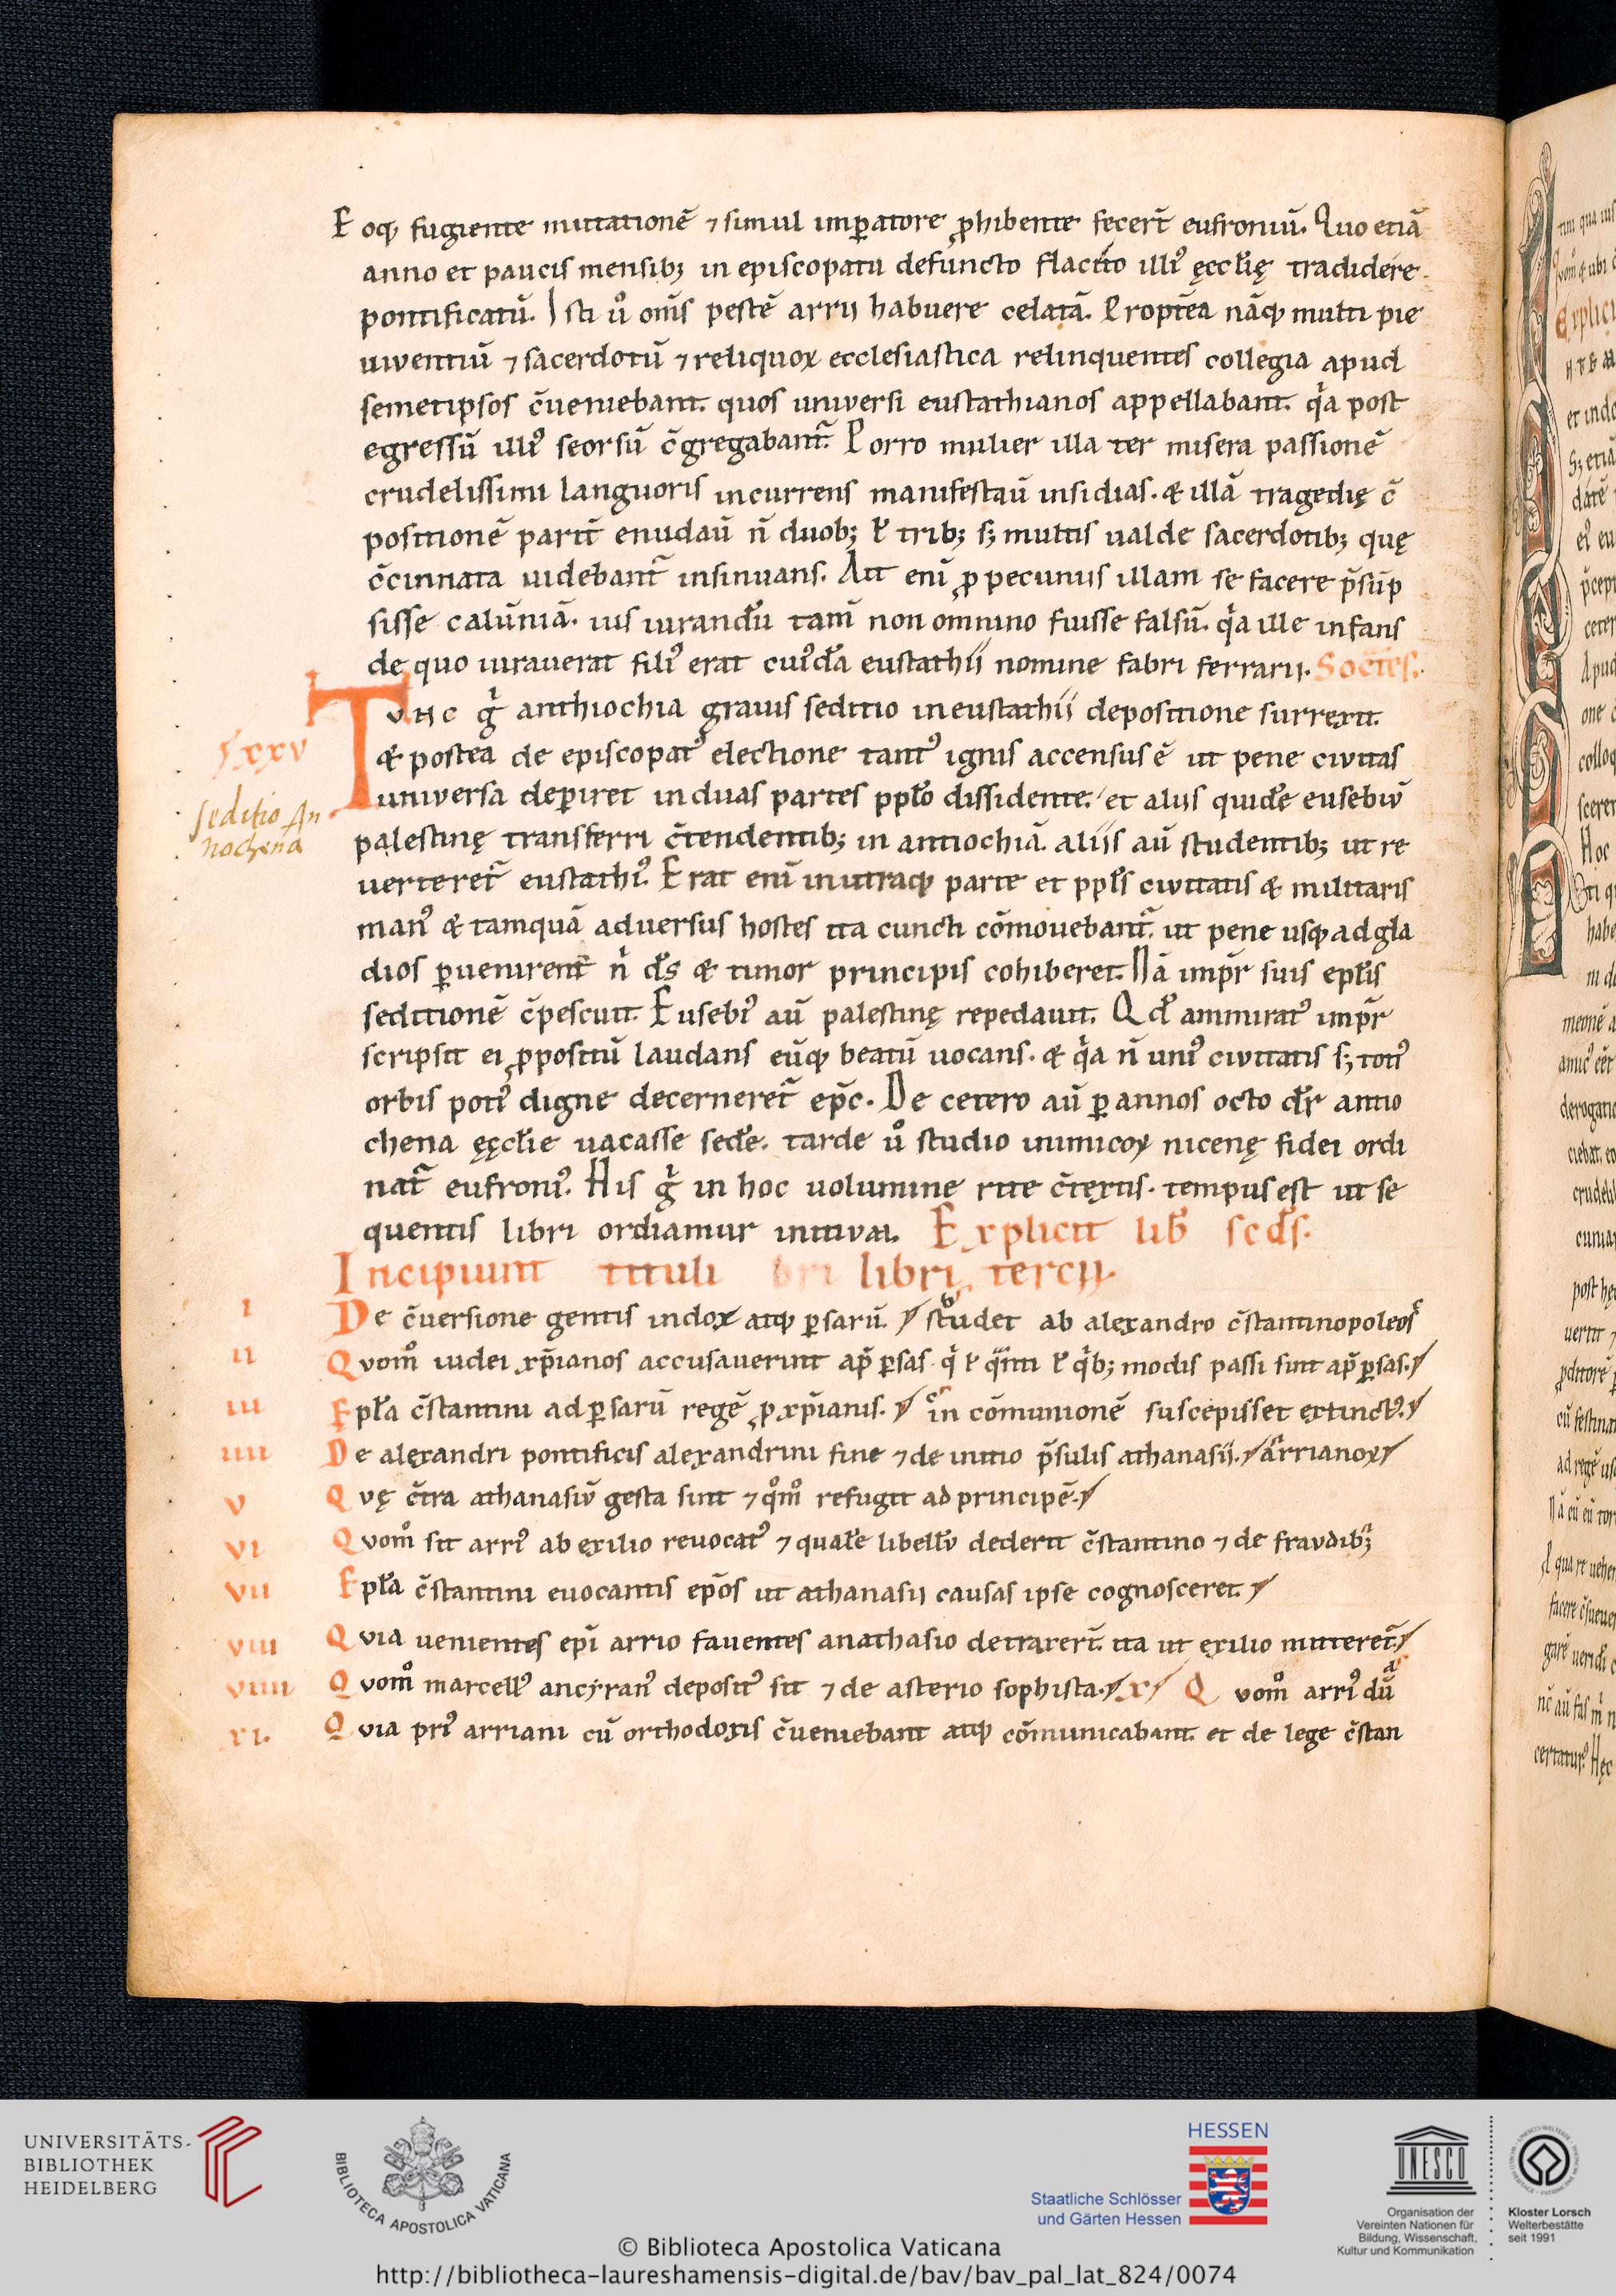 Eoq; fugiente mutationē ⁊ simul imꝑatore ꝓhibente fecerт̄ eufroniū. Quo etiā
anno et paucis mensib; in episcopatu defuncto flacito illi᾿ ęcclꝭię tradidere
pontificatū. Isti ů om̄s pestē arrij habuere celatā. Proptea nāq; multi pie
uiventiū ⁊ sacerdotū ⁊ reliquoꝝ ecclesiastica relinquentes collegia apud
semetipsos c̄ueniebant. quos universi eustathianos appellabant. q̇a post
egressū illi᾿ seorsū c̄gregabant̄. Porro mulier illa ter misera passionē
crudelissimi languoris incurrens manifestaū insidias. & illā tragedię c̄
positionē parit̄ enudaū n̄ duob; ł trib; s; multis ualde sacerdotib; quę
c̄cinnata uidebant̄ insinuans. Ait eni ꝓ pecuniis illam se facere p̄sūp
sisse calūniā. ius iurandū tam̄ non omnino fuisse falsū. q̇a ille infans
de quo iurauerat fili᾿ erat cui᾿dā eustathii nomine fabri ferrarij. Soc̄tes.
Tunc g̊ anthiochia grauis seditio in eustathii depositione surrexit.
& postea de episcopat᾿ electione tant᾿ ignis accensus ē ut pene civitas
universa deꝑiret in duas partes ppło dissidente. et aliis quidē eusebiū
palestinę transferri c̄tendentib; in antiochiā. aliis aū studentib; ut re
uerteret̄ eustathi᾿. Erat eni in utraq; parte et ppłs civitatis & militaris
man᾿ & tamquā adversus hostes ita cuncti cōmouebant̄. ut pene usq; ad gla
dios ꝑuenirent n̊ ds̄ & timor principis cohiberet. Nā imp̄r suis epłis
seditionē c̄pescuit. Eusebi᾿ aū palestinę repedauit. Qd̄ ammirat᾿ imp̄r
scripsit ei ꝓpositū laudans eūq; beatū uocans. & q̇a n̄ uni᾿ civitatis s; toti᾿
orbis poti᾿ digne decerneret̄ ep̄c. De cetero aū ꝑ annos octo dr̄ antio
chena ęcclie uacasse sedē. tarde ů studio inimicoꝝ nicenę fidei ordi
nat̄ eufroni᾿. His g̊ in hoc uolumine rite c̄textis. tempus est ut se
quentis libri ordiamur initivm. Explicit lib̄ scd̄s.
Incipiunt tituli libri tercij.
De c̄uersione gentis indoꝝ atq; ꝑsarū.
studet ab alexandro c̄stantinopoleos
Quom̊ iudei xp̄ianos accusauerint ap̄ ꝑsas. q̇ ł q̈nti ł q̇b; modis passi sint ap̄ ꝑsas.
Epła c̄stantini ad ꝑsarū regē ꝓ xp̄ianis.
in cōmunionē suscepisset extinct᾿.
De alexandri pontificis alexandrini fine ⁊ de initio p̄sulis athanasii.
arrianoꝝ
Quę c̄tra athanasiū gesta sint ⁊ q̊m̊ refugit ad principē.
Quom̊ sit arri᾿ ab exilio reuocat᾿ ⁊ quałe libellū dederit c̄stantino ⁊ de fraudib;
Epła c̄stantini euocantis ep̄os ut athanasij causas ipse cognosceret.
Quia uenientes ep̄i arrio fauentes anathasio detraxert̄. ita ut exilio mitteret̄.
Quom̊ marcell᾿ ancyran᾿ deposit᾿ sit ⁊ de asterio sophista. x Quom̊ arri᾿ dū
Quia pri᾿ arriani cū orthodoxis c̄ueniebant atq; cōmunicabant. et de lege c̄stan
xxv
seditio An
tiochena
i
ii
iii
iiii
v
vi
vii
viii
viiii
xi.
UNIVERSITÄTS-
BIBLIOTHEK
HEIDELBERG
BIBLIOTECA APOSTOLICA VATICANA
HESSEN
Staatliche Schlösser
und Gärten Hessen
UNESCO
Organisation der
Vereinten Nationen für
Bildung, Wissenschaft,
Kultur und Kommunikation
Kloster Lorsch
Welterbestätte
seit 1991
© Biblioteca Apostolica Vaticana
http://bibliotheca-laureshamensis-digital.de/bav/bav_pal_lat_824/0074